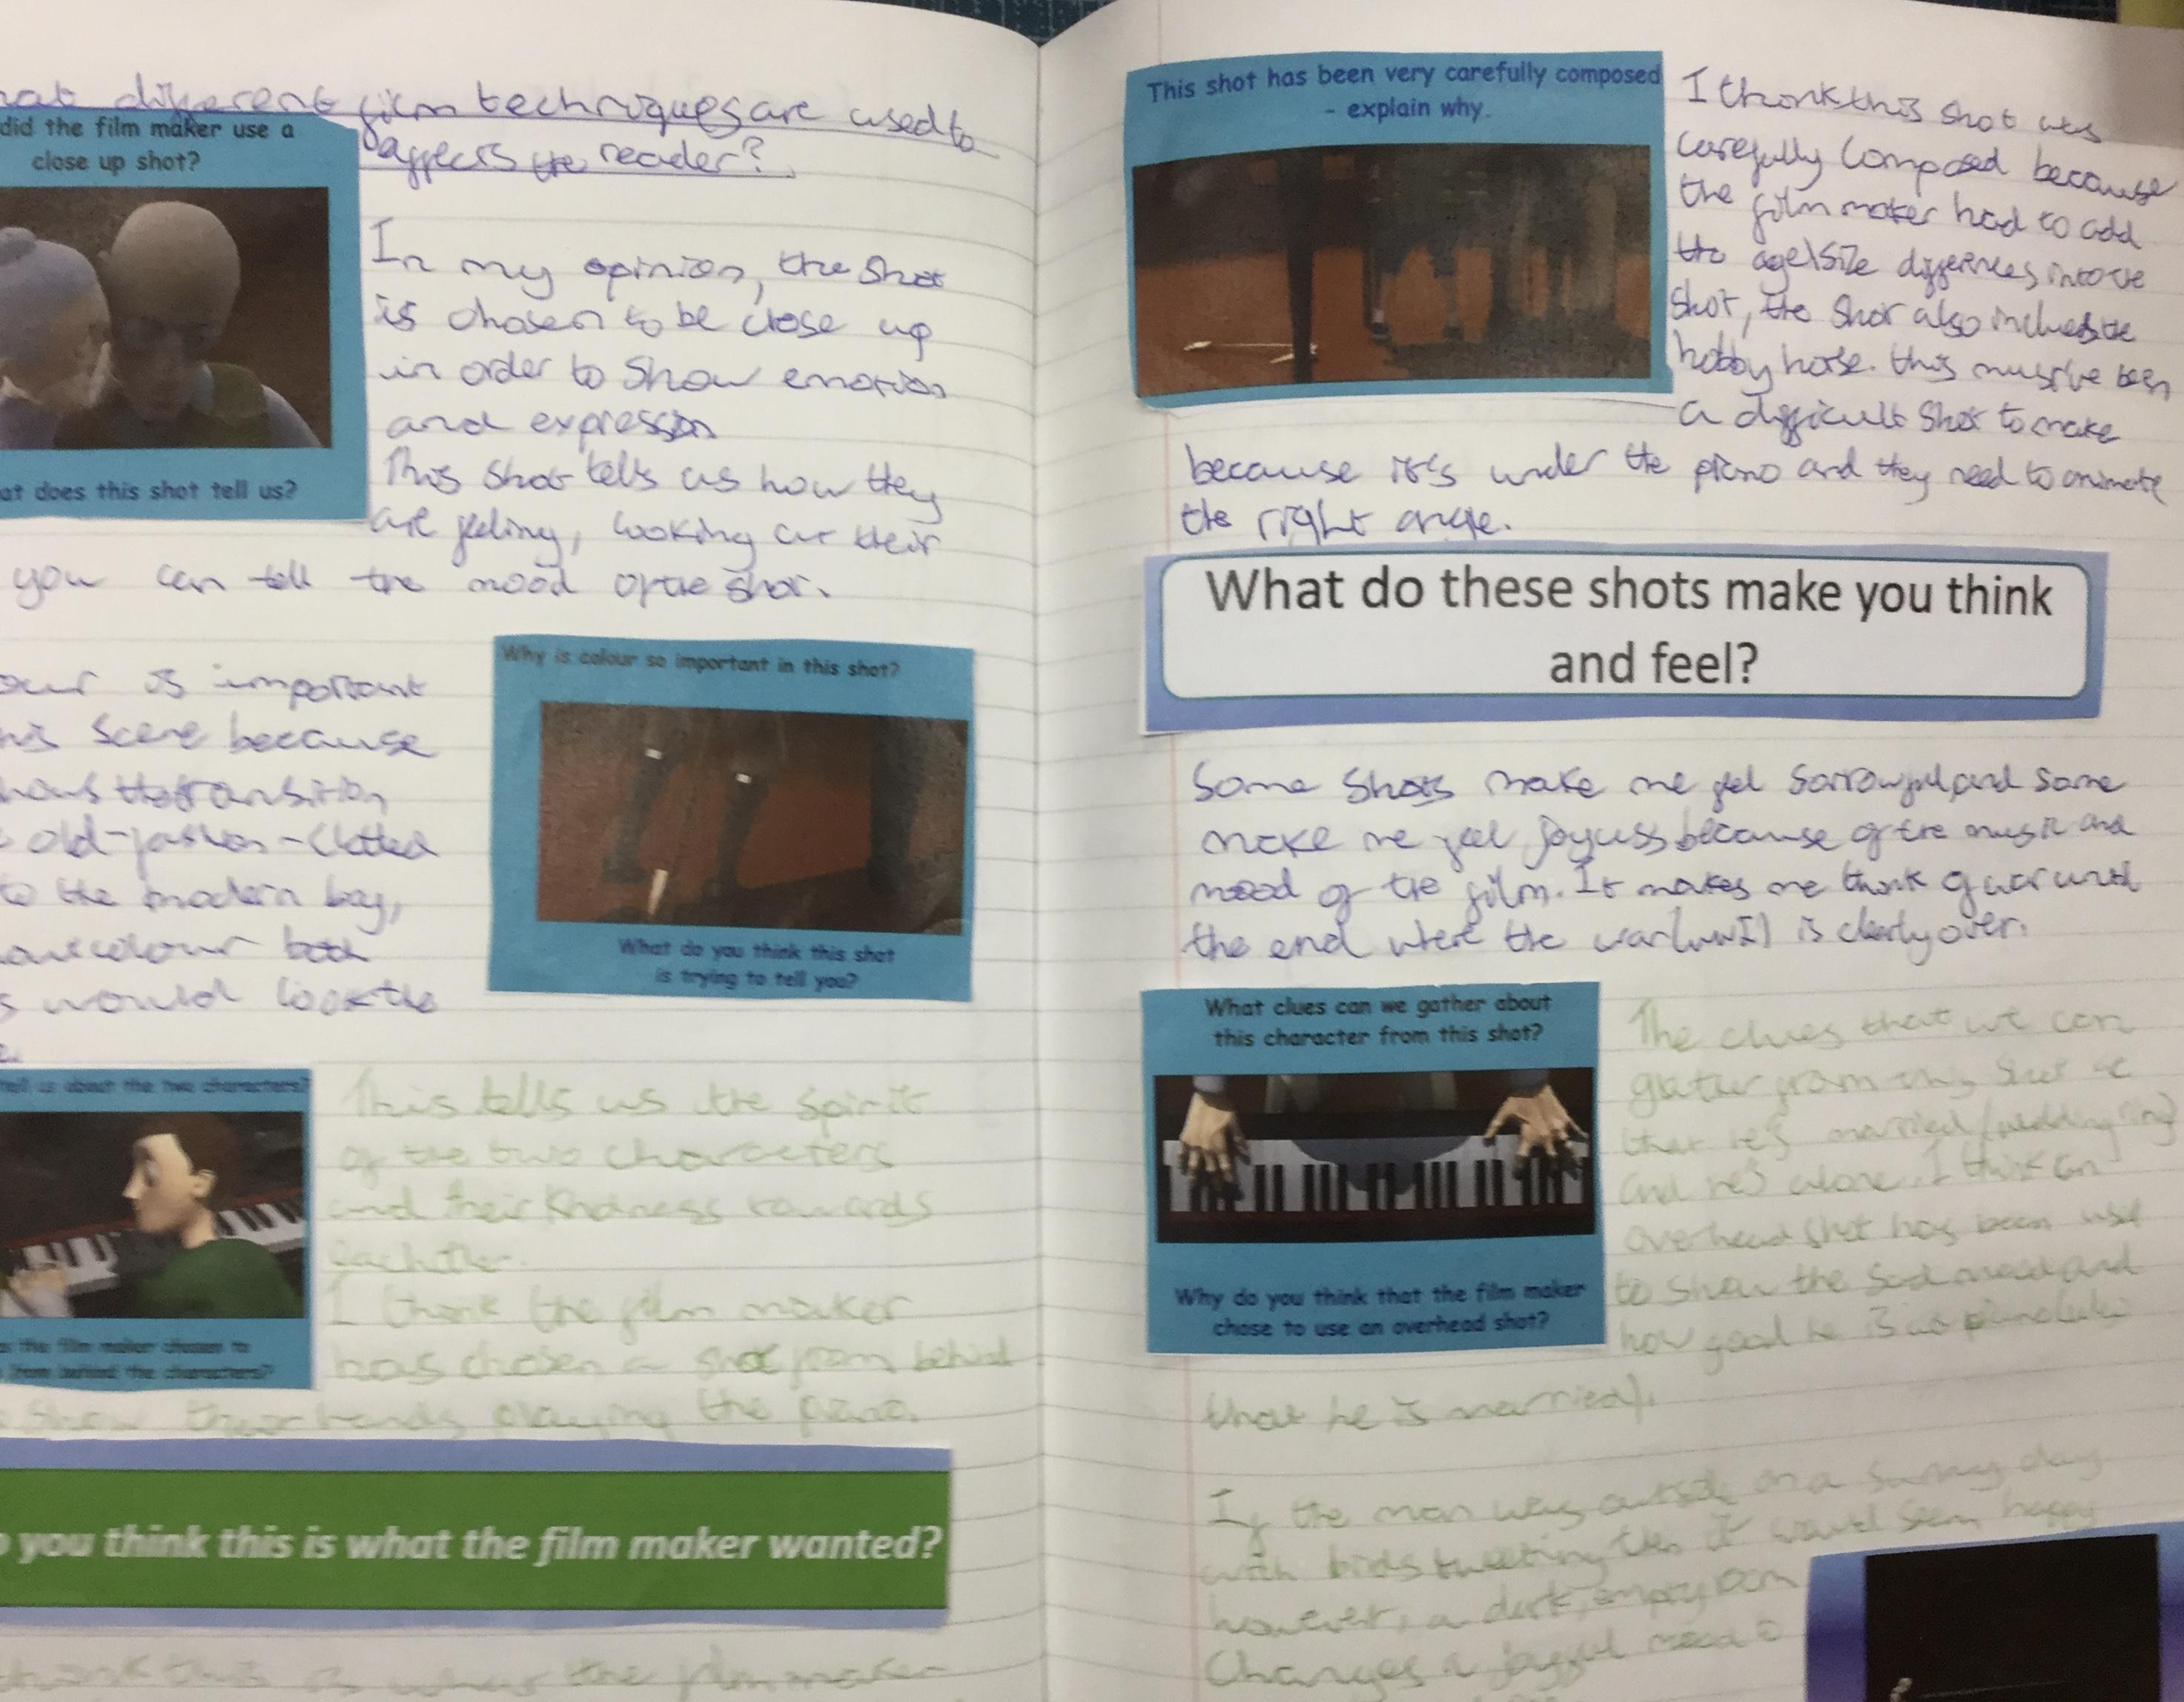 different film techniques are used to
affects the reader?
did the film maker use a
close up shot?
at does this shot tell us?
In my opinion, the shot
is chosen to be close up
in order to show emotion
and expression
This shot tells us how they
are feeling, looking at their
you can tell the mood of the shot.
Why is colour so important in this shot?
What do you think this shot
is trying to tell you?
our is important
scene because
the transition
old-fashon-
to the modern boy,
colour both
would look the
tell us about the two characters?
the film maker chosen to
from behind the characters?
This tells us the spirit
of the two characters
and their kindness towards
eachother.
I think the film maker
has chosen a shot from behind
show hands playing the piano.
you think this is what the film maker wanted?
think this is what the film maker
This shot has been very carefully composed
- explain why.
I think this shot was
carefully composed because
the film maker had to add
the age/size differences into the
shot, the shot also the
hobby horse. this must've been
a difficult shot to make
because it's under the piano and they need to animate
the right angle.
What do these shots make you think
and feel?
Some shots make me feel sorrowful and some
make me feel joyuss because of the music and
mood of the film. It makes me think of war until
the end where the war is clearly over.
What clues can we gather about
this character from this shot?
Why do you think that the film maker
chose to use an overhead shot?
The clues that we can
gather from this shot
that he's married (wedding ring)
and he's alone. I think an
overhead shot has been use
to show the sad mood and
how good he is
that he is married).
If the man was outside on a sunny day
with birds tweeting then it would seem happy
however, a dark, empty room
changes a joyful mood